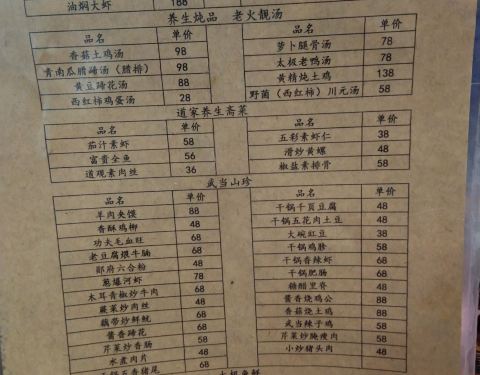 油焖大虾 188
养生炖品 老火靓汤
品名 单价
香菇土鸡汤 98
青南瓜腊蹄汤(腊排) 98
黄豆蹄花汤 88
西红柿鸡蛋汤 28
品名 单价
萝卜腿骨汤 78
太极老鸭汤 78
黄精炖土鸡 138
野菌(西红柿)川元汤 58
道家养生斋菜
品名 单价
茄汁素虾 58
富贵全鱼 56
道观素肉丝 36
品名 单价
五彩素虾仁 38
滑炒黄螺 48
椒盐素排骨 58
武当山珍
品名 单价
羊肉夹馍 88
香酥鸡柳 48
功夫毛血旺 68
老豆腐煨牛腩 68
郧府六合粉 48
葱爆河虾 78
木耳青椒炒牛肉 68
蕨菜炒肉丝 48
藕带炒鲜鱿 68
酱香蹄花 58
芹菜炒香肠 58
水煮肉片 48
68
品名 单价
干锅千页豆腐 48
干锅五花肉土豆 48
大碗豇豆 38
干锅鸡胗 58
干锅香辣虾 68
干锅肥肠 68
糖醋里脊 48
酱香烧鸡公 88
香菇烧土鸡 88
武当辣子鸡 58
芹菜炒腌瘦肉 58
小炒猪头肉 48